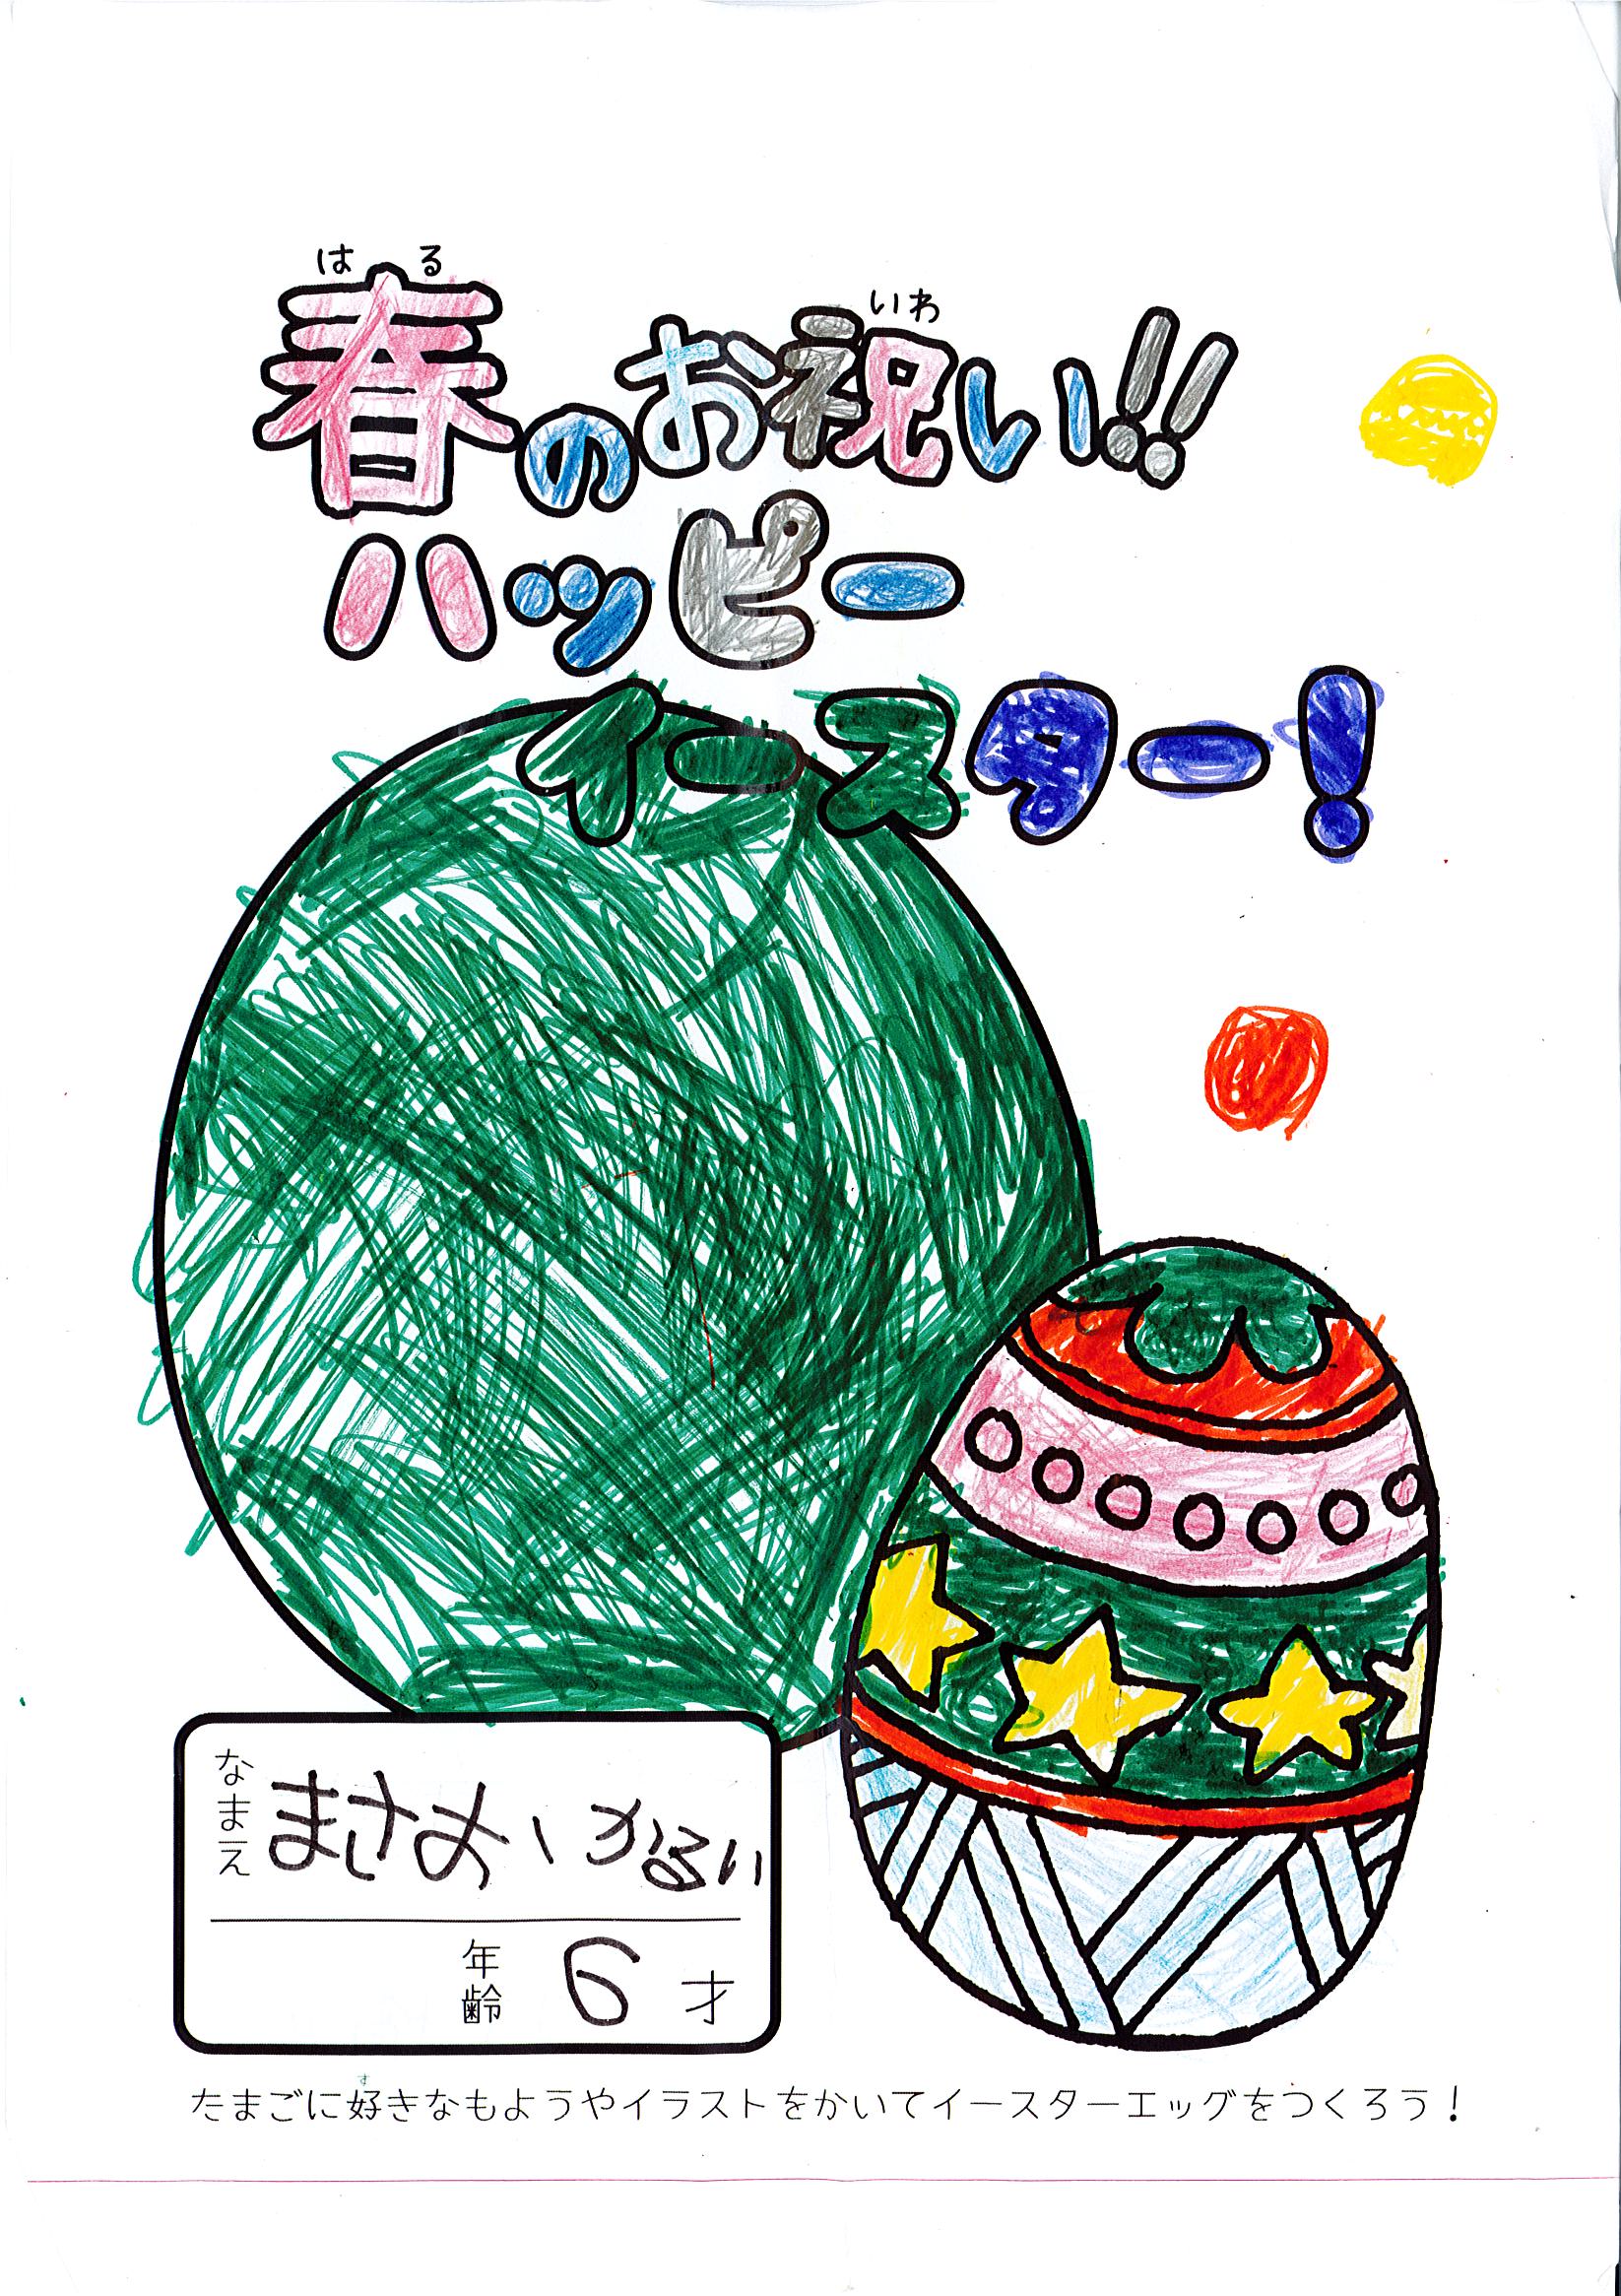 はる
春のお祝い!!
いわ
ハッピー
イースター!
なまえ
まさお、かるい
年齢 6 才
す
たまごに好きなもようやイラストをかいてイースターエッグをつくろう!